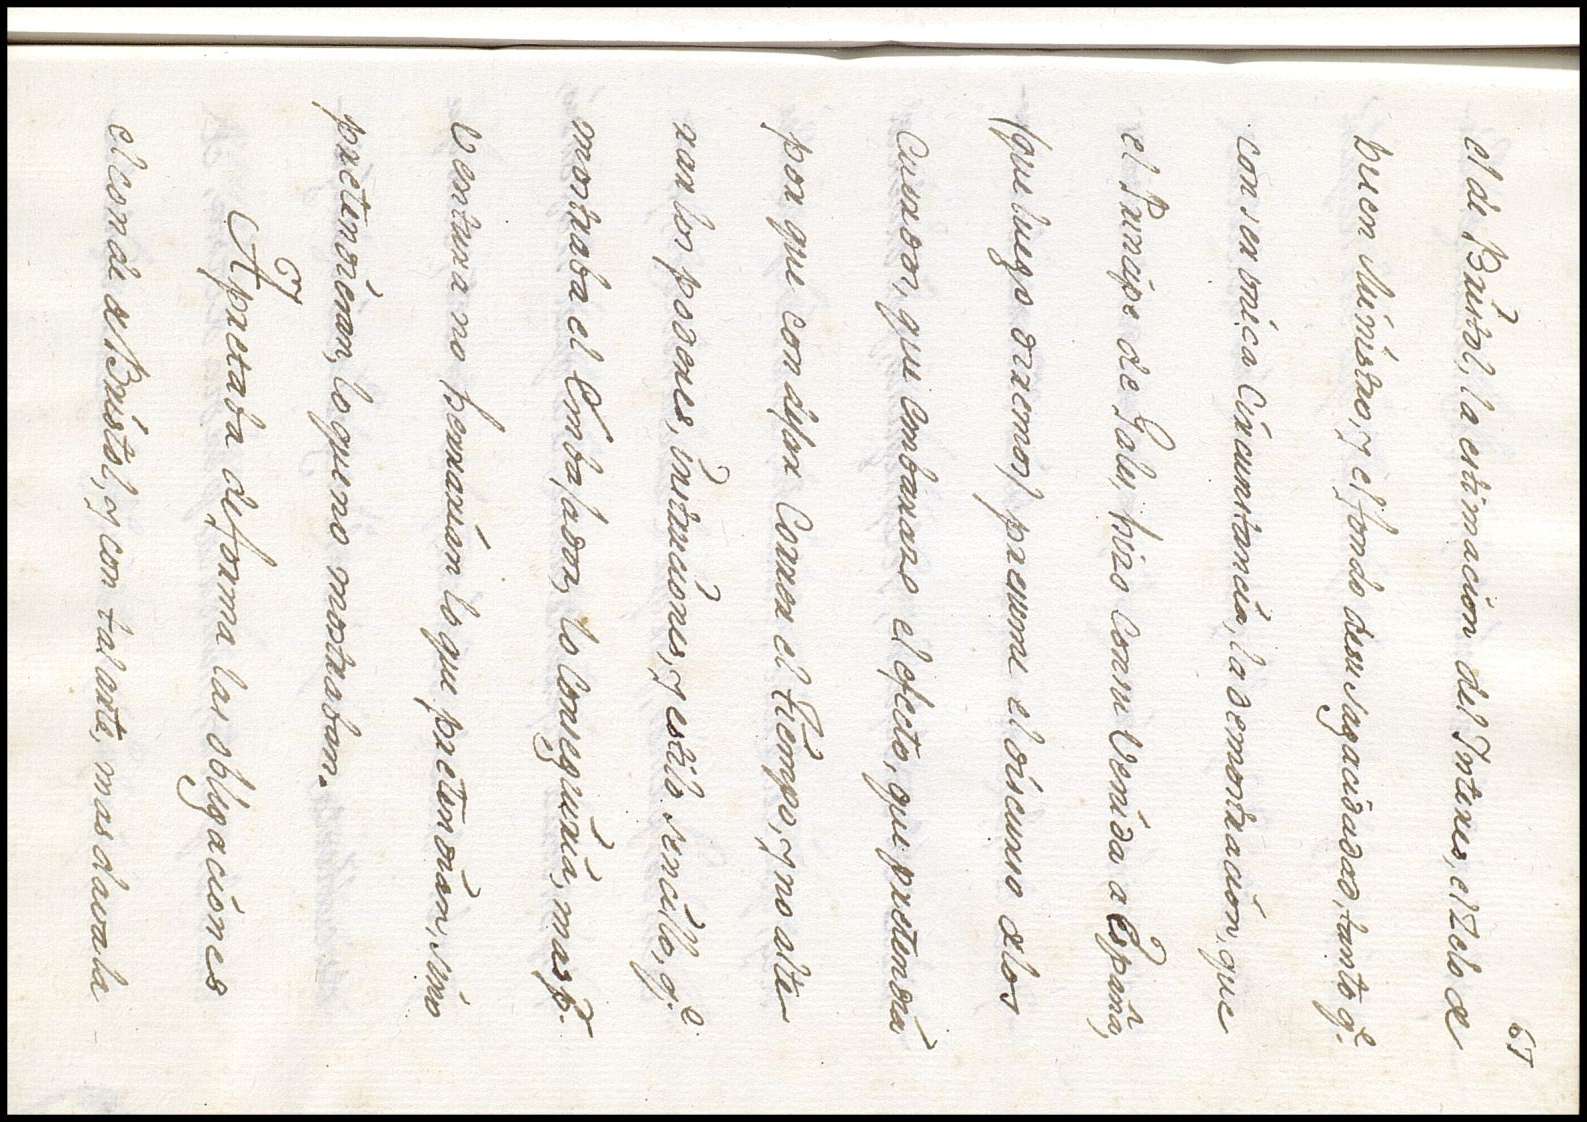 61
el de Bristol, la estimacion del Interes, el Zelo de
buen Ministro, y el fondo desu Sagacidad, tanto q.e
con ser unica Circunstancia, la demostracion, que
el Principe de Gales, hizo consu Venida a España,
(que luego diremos) presume el discurso delos
Curiosos, que embarazo el efecto, que pretendia
por que con dejar Correr el tiempo, y no alte
rar los poderes, instruciones, y estilo sencillo, q.e
mostraba el Embajador, lo Conseguiria, mas p.r
Ventura no pensarian lo que pretendian, sino
pretendieran, lo que no mostraban.
Apretaba de forma las obligaciones
el conde de Bristol, y con tal arte, mas dava la